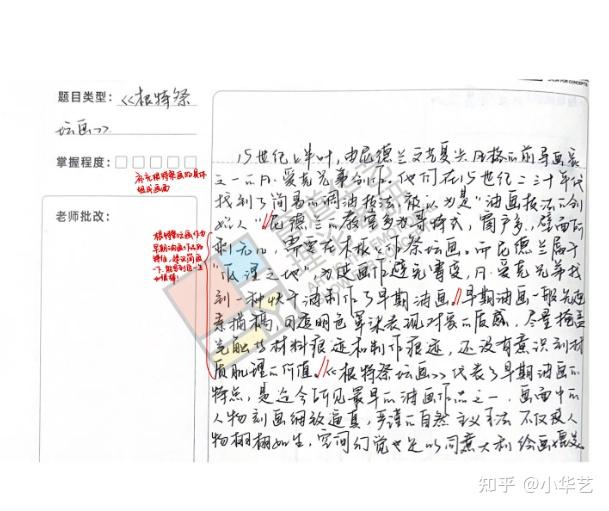 题目类型：《根特祭
坛画》
掌握程度：
补充根特祭画的具体
组成画面
老师批改：
根特祭坛画作为
早期油画作品的
特征，建议简画
一下
15世纪上半叶，由尼德兰文艺复兴风格的前导画家
之一的凡·爱克兄弟创作，他们在15世纪二三十年代
找到了简易的调油技法，被认为是“油画技法的创
始人”。尼德兰的教堂多为哥特式，窗户多，壁面面
积不足，需要在木板上作祭坛画。而尼德兰属于
“低湿之地”为使画作避免霉变，凡·爱克兄弟找
到一种快干油制作了早期油画。早期油画一般先画
素描稿，用透明色罩染表现对象的质感，尽量掩盖
笔触等材料痕迹和制作痕迹，还没有意识到材
质肌理的价值。《根特祭坛画》代表了早期油画的
特点，是迄今所见最早的油画作品之一，画面中的
人物刻画细致逼真，严谨的自然主义手法不仅使人
物栩栩如生，空间幻觉也足以同意大利绘画媲美
知乎 @小华艺